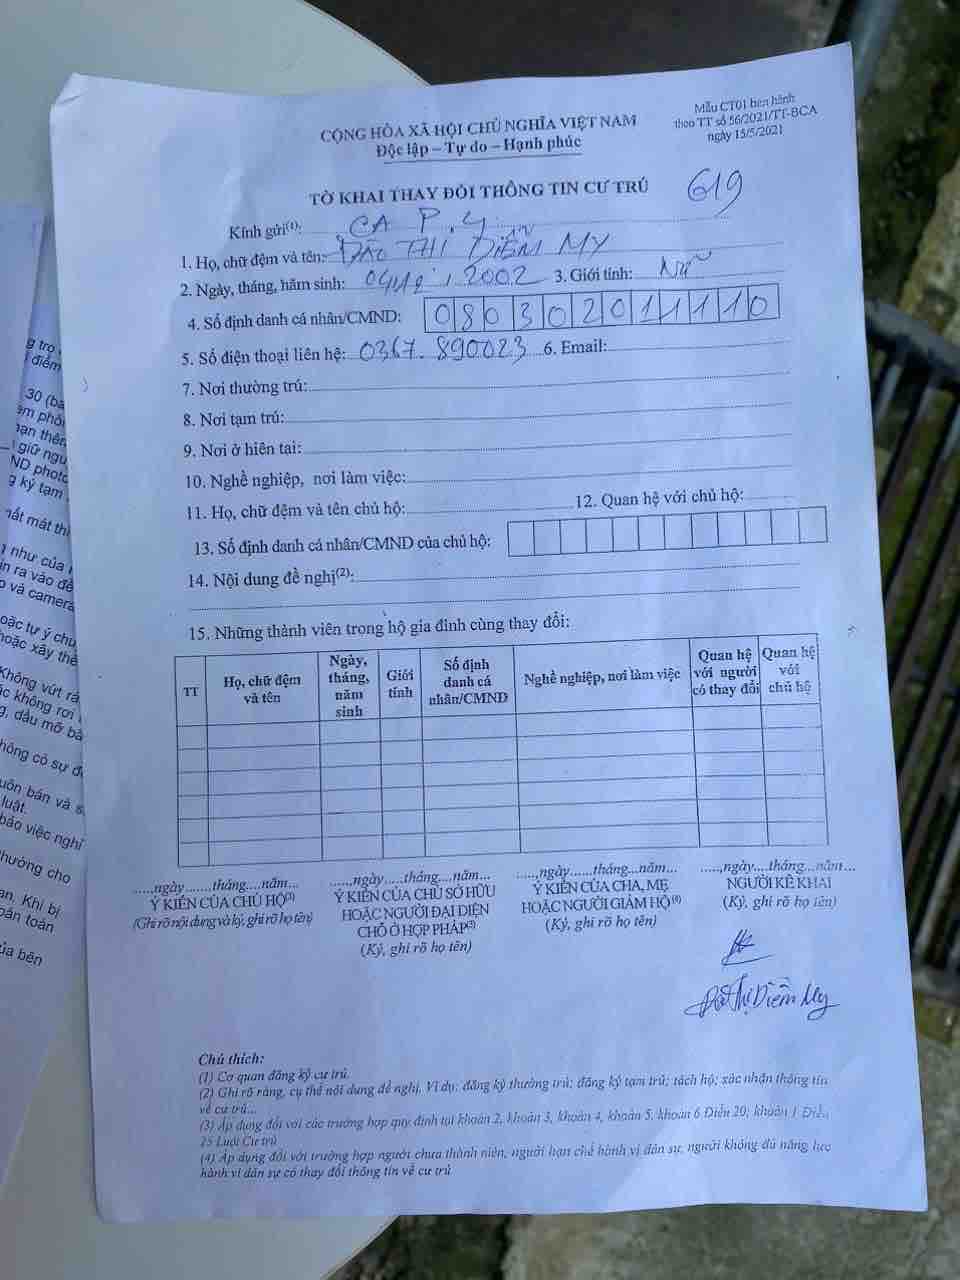 CỘNG HÒA XÃ HỘI CHỦ NGHĨA VIỆT NAM
Độc lập – Tự do – Hạnh phúc
Mẫu CT01 ban hành
theo TT số 56/2021/TT-BCA
ngày 15/5/2021
TỜ KHAI THAY ĐỔI THÔNG TIN CƯ TRÚ
619
Kính gửi(1): CA P. 4
1. Họ, chữ đệm và tên: ĐÀO THỊ DIỄM MY
2. Ngày, tháng, năm sinh: 2002 3. Giới tính: Nữ
4. Số định danh cá nhân/CMND: 080302011110
5. Số điện thoại liên hệ: 0367.890023 6. Email:
7. Nơi thường trú:
8. Nơi tạm trú:
9. Nơi ở hiện tại:
10. Nghề nghiệp, nơi làm việc:
11. Họ, chữ đệm và tên chủ hộ: 12. Quan hệ với chủ hộ:
13. Số định danh cá nhân/CMND của chủ hộ:
14. Nội dung đề nghị(2):
15. Những thành viên trong hộ gia đình cùng thay đổi:
TT
Họ, chữ đệm và tên
Ngày, tháng, năm sinh
Giới tính
Số định danh cá nhân/CMND
Nghề nghiệp, nơi làm việc
Quan hệ với người có thay đổi
Quan hệ với chủ hộ
.....,ngày.......tháng....năm...
Ý KIẾN CỦA CHỦ HỘ(3)
(Ghi rõ nội dung và ký, ghi rõ họ tên)
.....,ngày.....tháng....năm...
Ý KIẾN CỦA CHỦ SỞ HỮU
HOẶC NGƯỜI ĐẠI DIỆN
CHỖ Ở HỢP PHÁP(3)
(Ký, ghi rõ họ tên)
.....,ngày.....tháng...năm...
Ý KIẾN CỦA CHA, MẸ
HOẶC NGƯỜI GIÁM HỘ(4)
(Ký, ghi rõ họ tên)
.....,ngày....tháng...năm...
NGƯỜI KÊ KHAI
(Ký, ghi rõ họ tên)
Đào Thị Diễm My
Chú thích:
(1) Cơ quan đăng ký cư trú.
(2) Ghi rõ ràng, cụ thể nội dung đề nghị. Ví dụ: đăng ký thường trú; đăng ký tạm trú; tách hộ; xác nhận thông tin
về cư trú...
(3) Áp dụng đối với các trường hợp quy định tại khoản 2, khoản 3, khoản 4, khoản 5, khoản 6 Điều 20; khoản 1 Điều
25 Luật Cư trú
(4) Áp dụng đối với trường hợp người chưa thành niên, người hạn chế hành vi dân sự, người không đủ năng lực
hành vi dân sự có thay đổi thông tin về cư trú